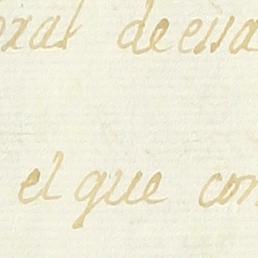 oral de essa
el que con